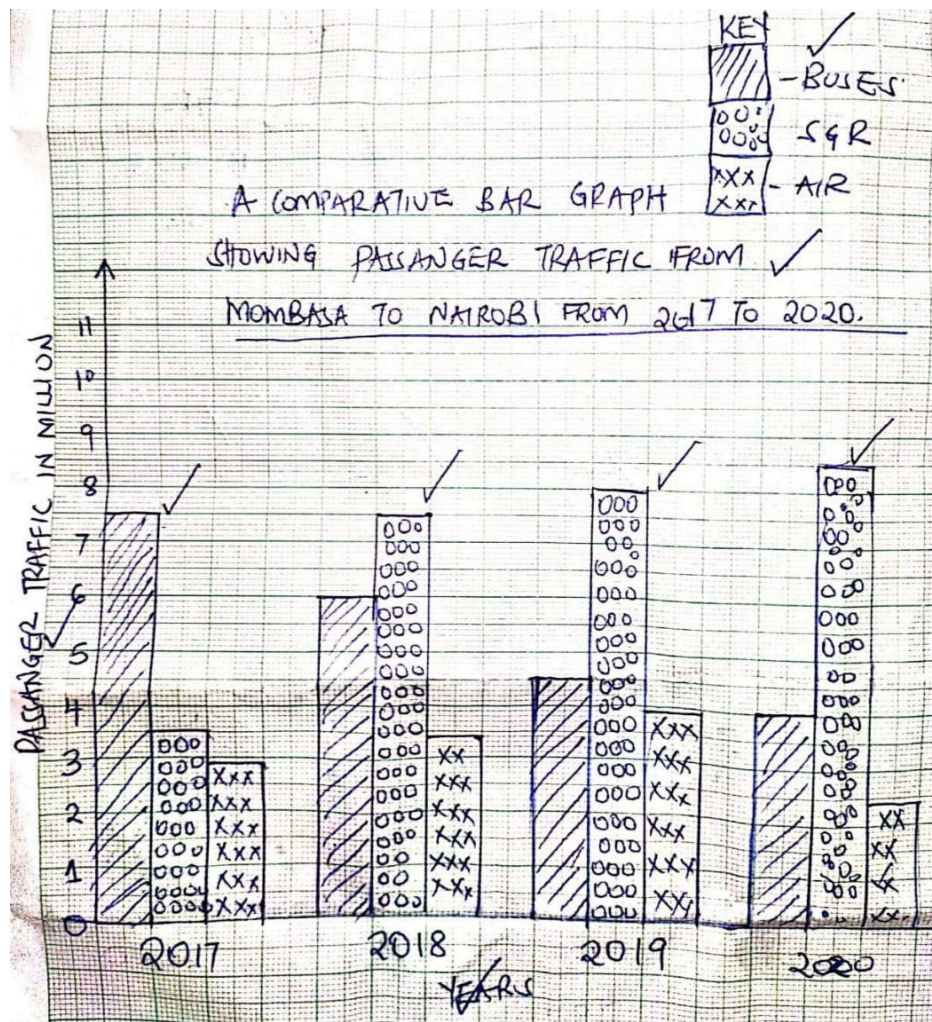 KEY
- BUSES
SGR
- AIR
A COMPARATIVE BAR GRAPH
SHOWING PASSANGER TRAFFIC FROM
MOMBASA TO NAIROBI FROM 2017 TO 2020.
PASSANGER TRAFFIC IN MILLION
11
10
9
8
7
6
5
4
3
2
1
0
2017 2018 2019 2020
YEARS